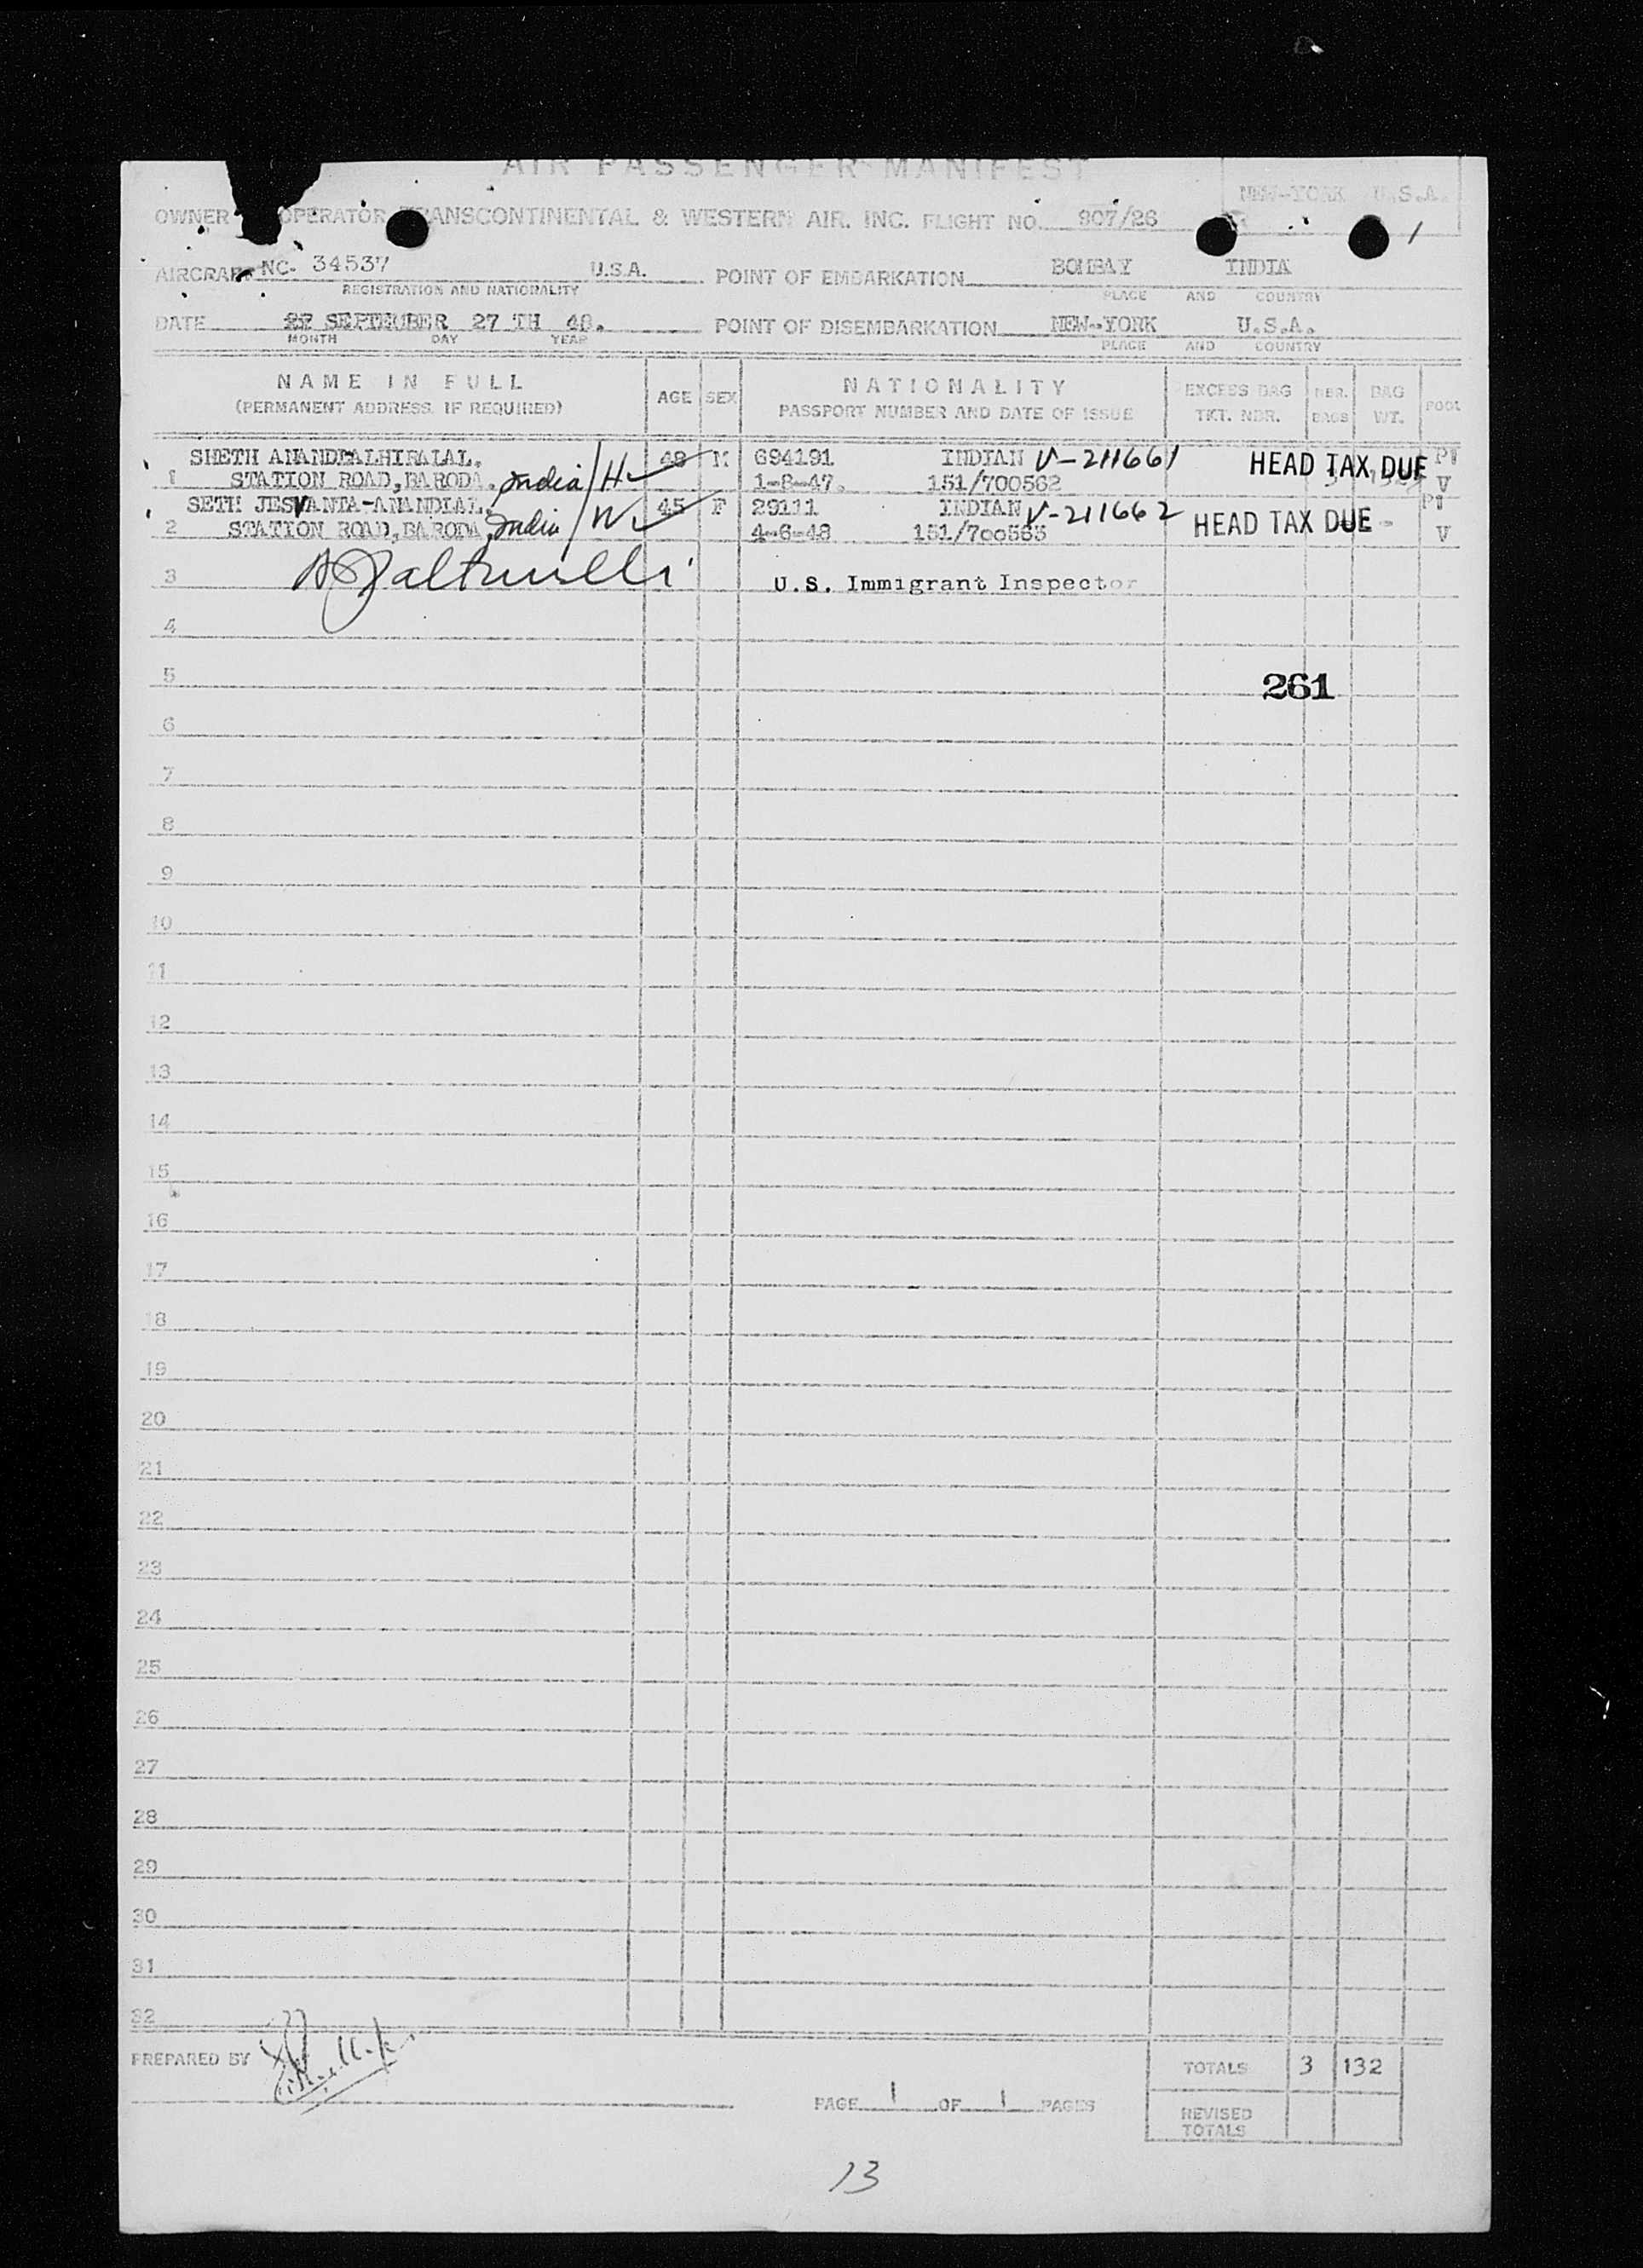 AIR PASSENGER MANIFEST
NEW-YORK U.S.A.
OWNER OPERATOR TRANSCONTINENTAL & WESTERN AIR. INC. FLIGHT NO. 807/26
1
AIRCRAFT NC- 34537 U.S.A. POINT OF EMBARKATION BOMBAY INDIA
REGISTRATION AND NATIONALITY PLACE AND COUNTRY
DATE SEPTEMBER 27 TH 48. POINT OF DISEMBARKATION NEW-YORK U.S.A.
MONTH DAY YEAR PLACE AND COUNTRY
NAME IN FULL AGE SEX NATIONALITY EXCESS BAG NBR. BAG POOL
(PERMANENT ADDRESS IF REQUIRED) PASSPORT NUMBER AND DATE OF ISSUE TKT. NBR. BAGS WT.
SHETH ANANDLALHIRALAL. 48 M 694191 INDIAN V-211661 HEAD TAX DUE PT
1 STATION ROAD, BARODA. India /H 1-8-47. 151/700562 V
SETH JESVANTA-ANANDLAL. 45 F 29111 INDIAN V-211662 HEAD TAX DUE PT
2 STATION ROAD, BARODA, India /W 4-6-48 151/700563 V
3 U.S. Immigrant Inspector
4
5 261
6
7
8
9
10
11
12
13
14
15
16
17
18
19
20
21
22
23
24
25
26
27
28
29
30
31
32
PREPARED BY
TOTALS 3 132
PAGE 1 OF 1 PAGES
REVISED
TOTALS
13